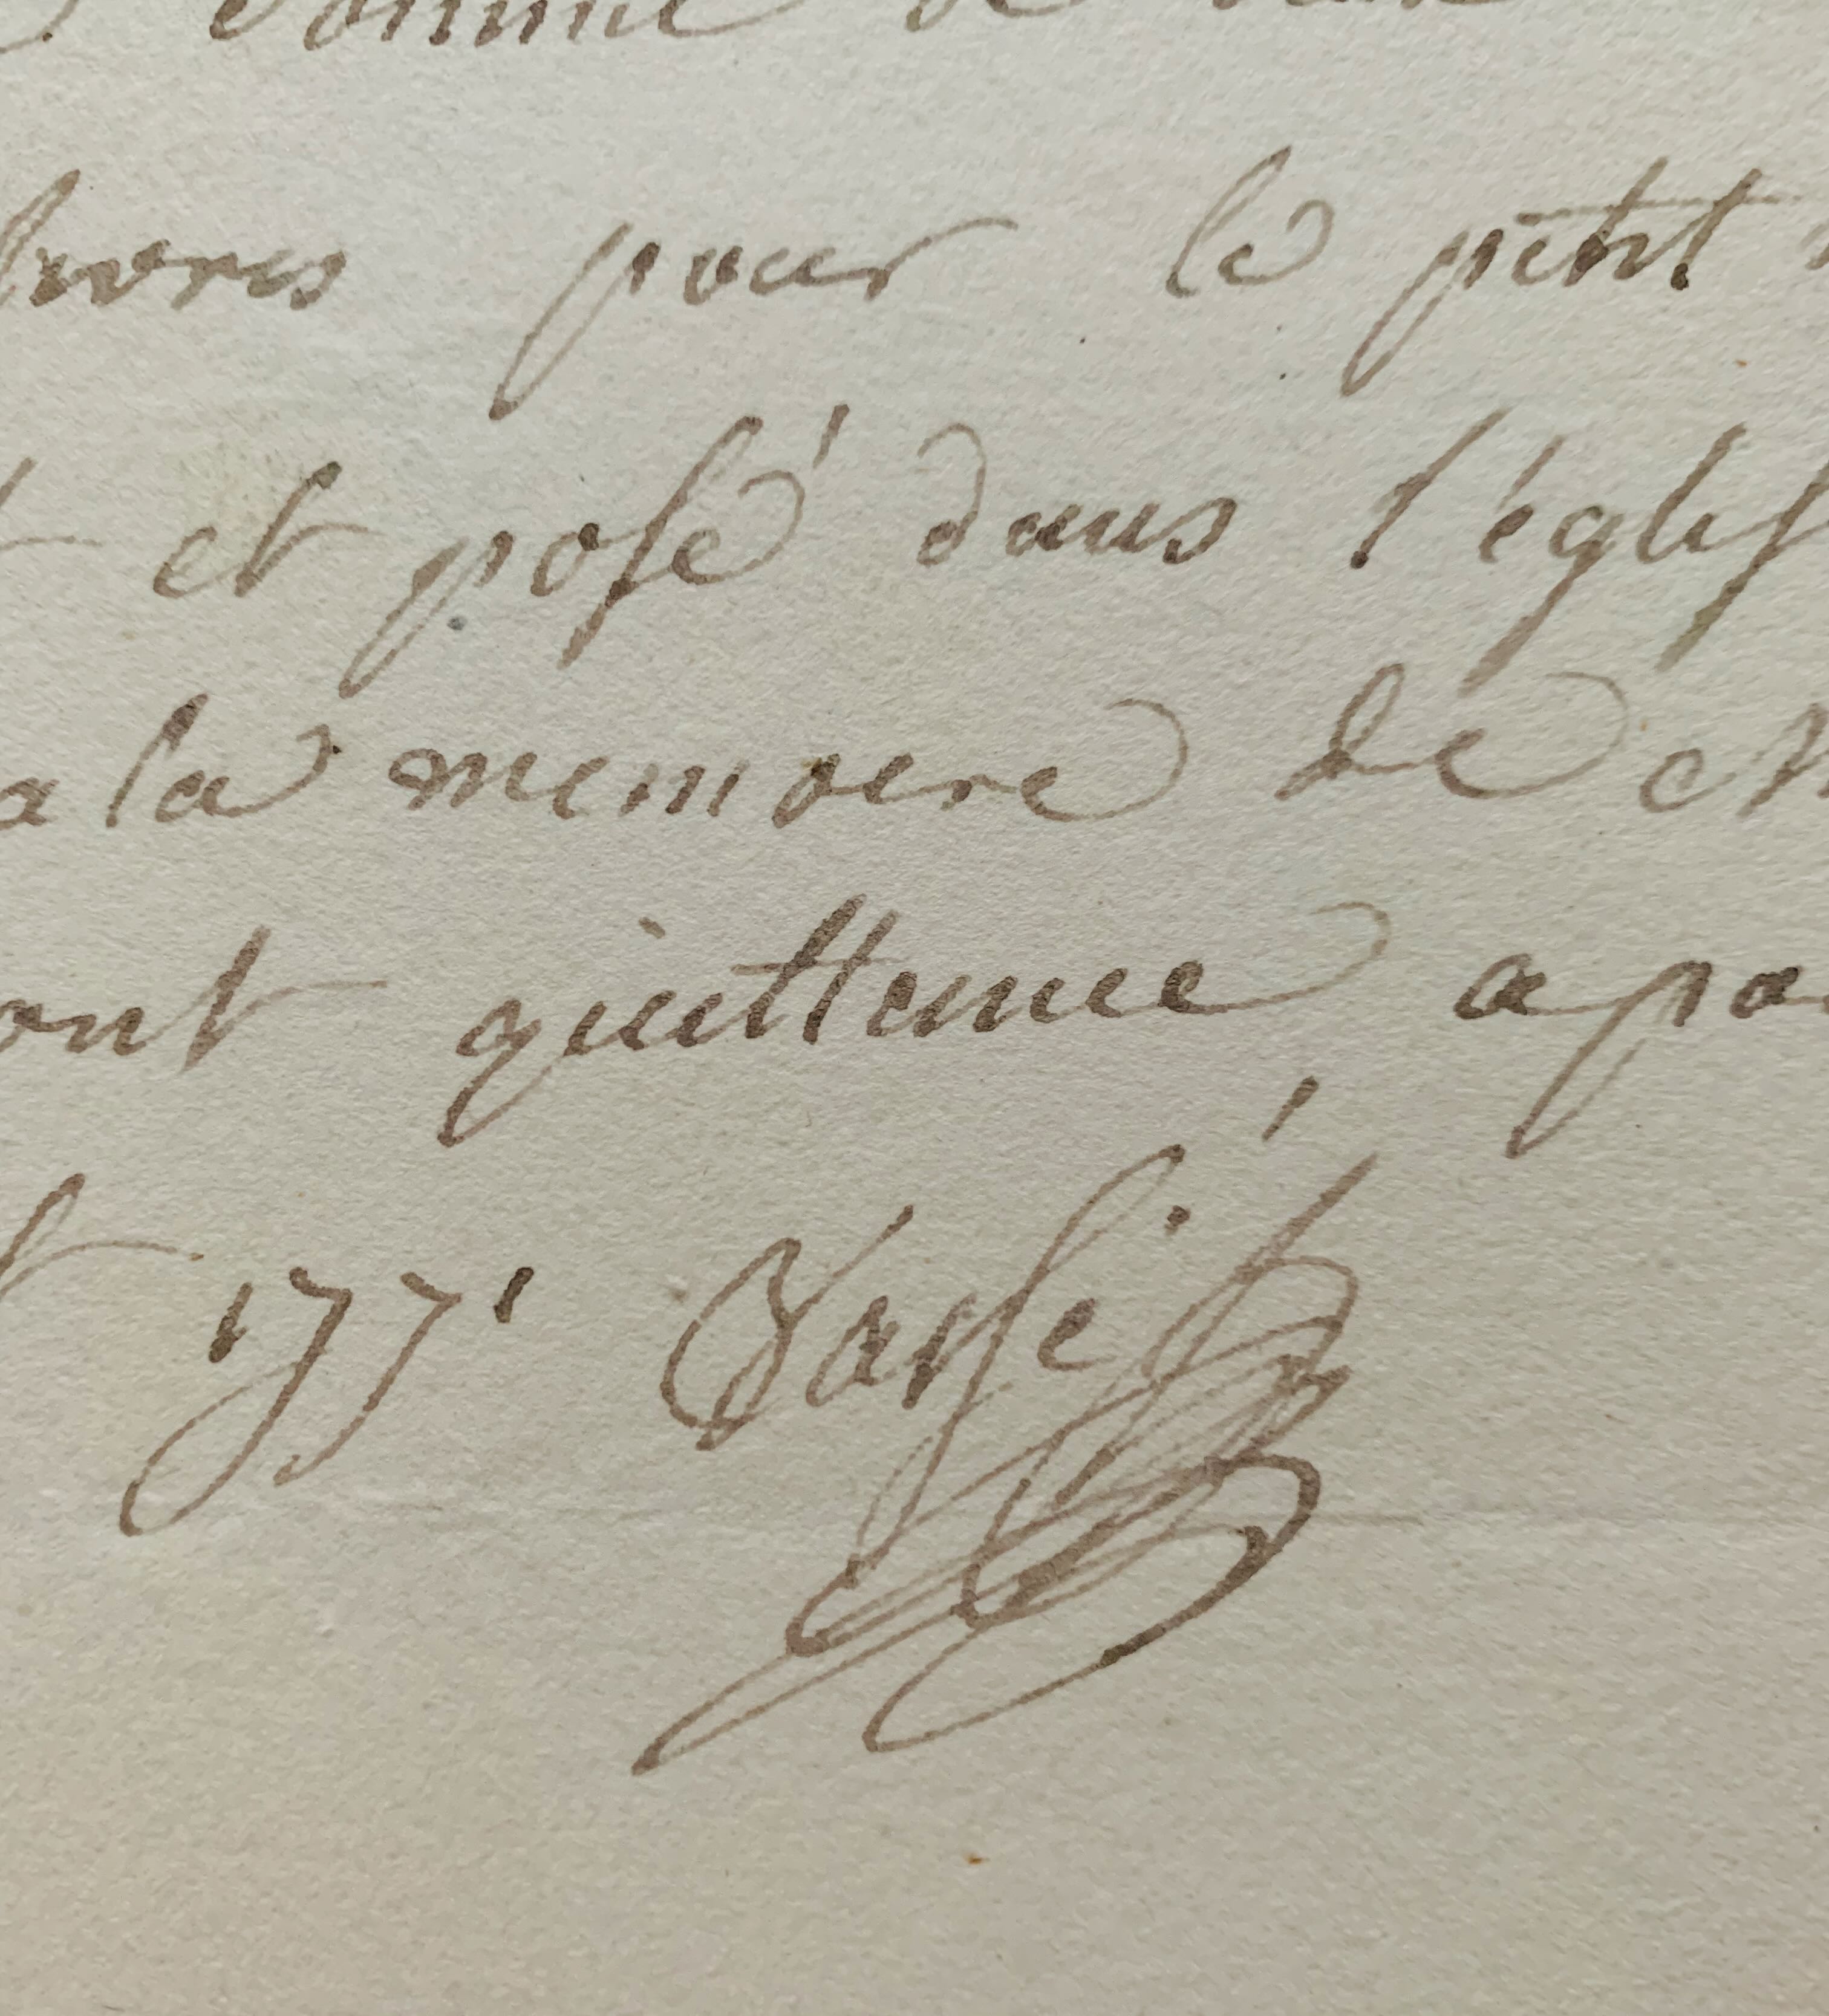 somme de
livres pour le petit
et posé dans l'églis
a la memoire de
ont quittance a pa
1771 Vassé